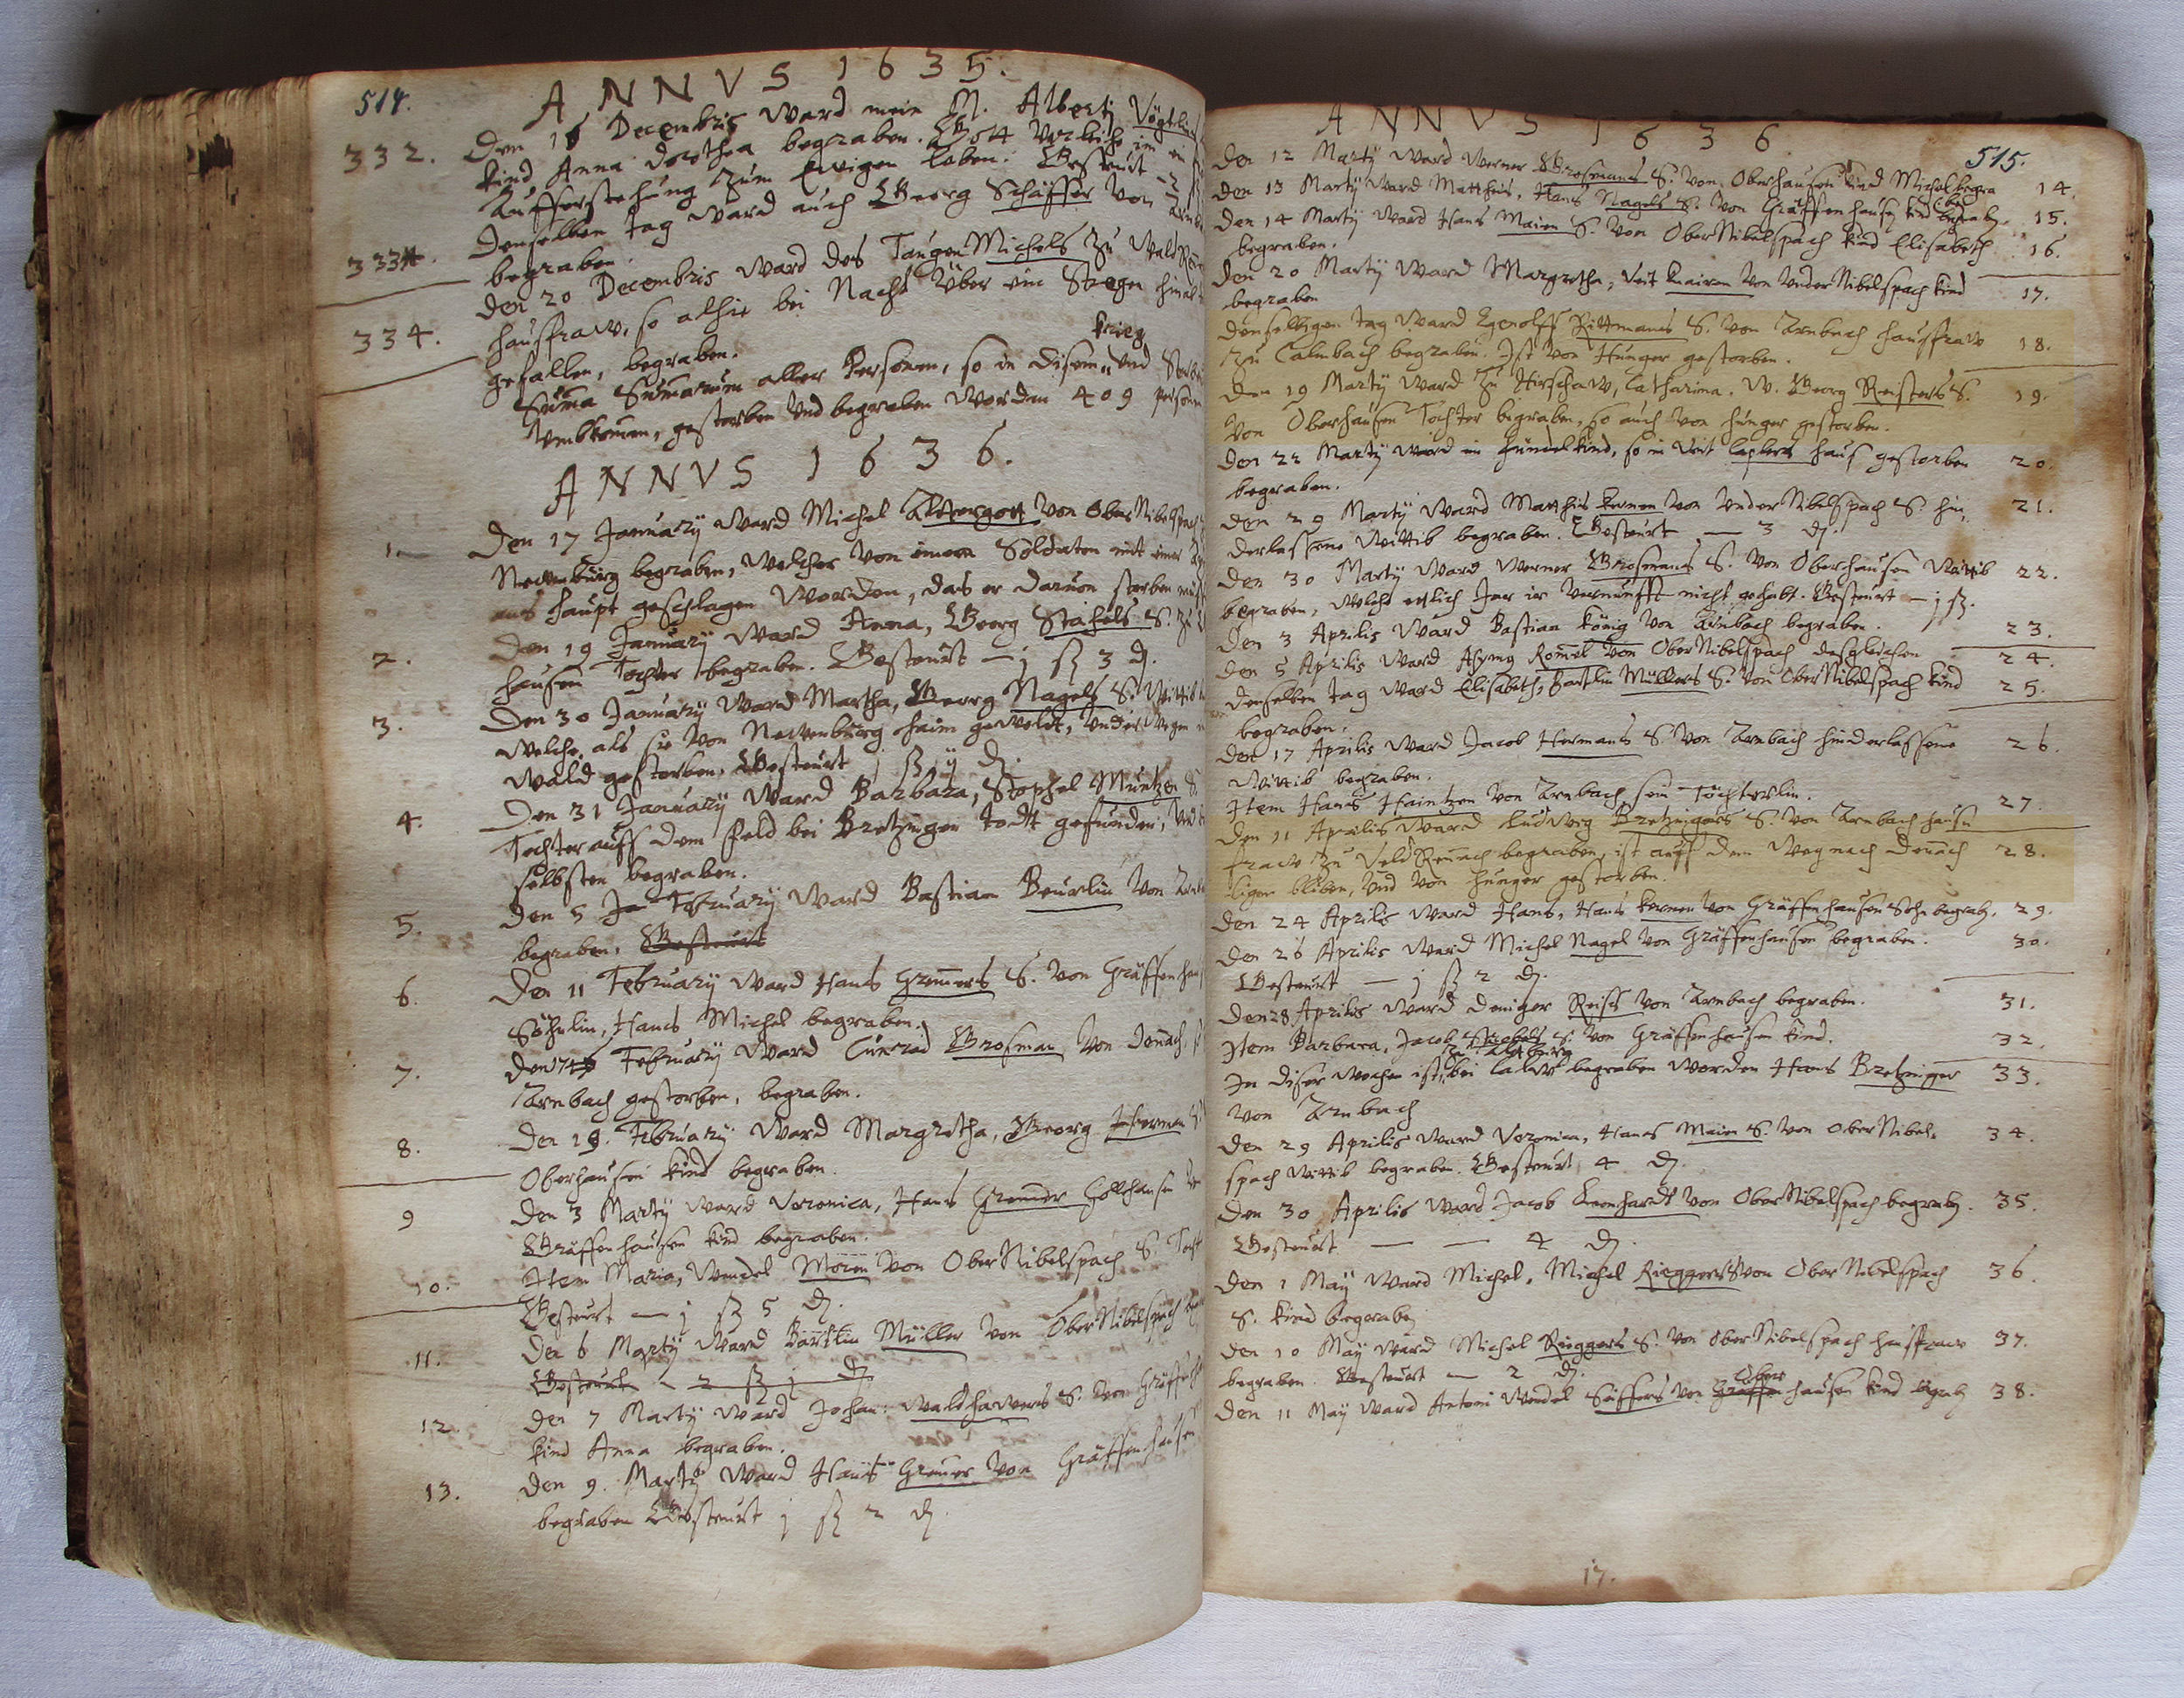 514.
ANNVS 1635.
332. Den 16 Decembris ward mein M. Alberti Vögtlins
kind Anna Dorothea begraben. Gott verleihe im ein
Aufferstehung zum Ewigen leben. Gesteurt - 2 ß
333. Denselben tag ward auch Georg Schäffer von Arnb
begraben.
334. Den 20 Decembris ward des Michels zu
haussfraw, so alhie bei Nacht über ein Stegen
gefallen, begraben.
krieg
Suma Sumarum aller Personen, so in disem und
umbkomen, gestorben und begraben worden 409 Person
ANNVS 1636.
1. Den 17 January ward Michel Altvergott von OberNibelspach
Newenburg begraben, welcher von einem Soldaten mit einer
ans haupt geschlagen worden, das er daruon sterben
2. Den 19 January ward Anna, Georg Stahels S. zu
hausen Tochter begraben. Gesteurt — j ß 3 d.
3. Den 30 January ward Martha, Georg Nagels S. Wittib
welche, als sie von Newenburg haim gewelt, underwegen
wald gestorben. Gesteurt j ß ij d.
4. Den 31 January ward Barbara, Stophel Müntzen S.
Tochter auff dem feld bei Bretzingen todt gefunden, und
selbsten begraben.
5. Den 5 February ward Bastian Beurlin von
begraben. Gesteurt
6. Den 11 February ward Hans Gremers S. von Gräffenhaus
Söhnlin, Hans Michel begraben.
7. Den 17 February ward Cunrad Grosman von Dennach,
Arnbach gestorben, begraben.
8. Den 19. February ward Margretha, Georg
Oberhausen kind begraben.
9 Den 3 Martij ward Veronica, Hans Gremer
Gräffenhausen kind begraben.
10. Item Maria, Wendel Mörin von OberNibelspach S.
Gesteurt — j ß 5 d.
11. Den 6 Martij ward Bartlin Müller von OberNibelspach
Gesteurt - 2 ß j d
12. Den 7 Martij ward Johan: Waldhawers S. von
kind Anna begraben.
13. Den 9. Martij ward Hans Gremer von Gräffenhausen
begraben Gesteurt j ß 2 d.
ANNVS 1636
515.
Den 12 Martij ward Werner Grosmans S. von Oberhausen kind Michel begra 14.
ben
Den 13 Martij ward Matthis, Hans Nagels S. von Gräffenhausen kind begrab. 15.
Den 14 Martij ward Hans Maien S. von OberNibelspach kind Elisabeth 16.
begraben.
Den 20 Martij ward Margretha, Veit Knairen von UnderNibelspach kind 17.
begraben
Denselbigen tag ward Egenolff Rittmans S. von Arnbach haussfraw 18.
zu Calmbach begraben. Ist von Hunger gestorben.
Den 19 Martij ward zu Hirschaw, Catharina. W. Georg Reisters S. 19.
von Oberhausen Tochter begraben, so auch von hunger gestorben.
Den 22 Martij ward ein kind, so in Veit haus gestorben 20.
begraben.
Den 29 Martij ward Matthis Kernen von UnderNibelspach S. hin, 21.
derlassene Wittib begraben. Gesteurt — 3 d.
Den 30 Martij ward Werner Grosmans S. von Oberhausen Wittib 22.
begraben, welche etlich Jar ir vernunfft nicht gehabt. Gesteurt — j ß.
Den 3 Aprilis ward Bastian König von Arnbach begraben. 23.
Den 5 Aprilis ward Asymg Romel von OberNibelspach desgleichen 24.
Denselben tag ward Elisabeth, Bartlin Müllers S. von OberNibelspach kind 25.
begraben.
Den 17 Aprilis ward Jacob Hermans S. von Arnbach hinderlassene 26.
Wittib begraben.
Item Hans Haintzen von Arnbach sein Töchterlin. 27.
Den 11 Aprilis ward Ludwig Bretzingers S. von Arnbach hauss
fraw zu VeldRennach begraben, ist auff dem weg nach Dennach 28.
ligen bliben, und von hunger gestorben.
Den 24 Aprilis ward Hans, Hans Kernen von Gräffenhausen Sohn begrab. 29.
Den 26 Aprilis ward Michel Nagel von Gräffenhausen begraben. 30.
Gesteurt — j ß 2 d.
Den 28 Aprilis ward Deniger Reiss von Arnbach begraben. 31.
Item Barbara, Jacob S. von Gräffenhausen kind. 32.
zu Altburg
In diser wochen ist bei Calw begraben worden Hans Bretzinger 33.
von Arnbach
Den 29 Aprilis ward Veronica, Hans Maien S. von OberNibel, 34.
spach Wittib begraben. Gesteurt 4 d.
Den 30 Aprilis ward Jacob Leonhardt von OberNibelspach begrab. 35.
Gesteurt — — 4 d.
Den 1 Maij ward Michel, Michel Rieggers von OberNibelspach 36.
S. kind begraben
Den 10 Maij ward Michel Rieggers S. von OberNibelspach haussfraw 37.
begraben. Gesteurt — 2 d.
Ober
Den 11 Maij ward Antoni Wendel Seiffers von Gräffen hausen kind begrab 38.
17.